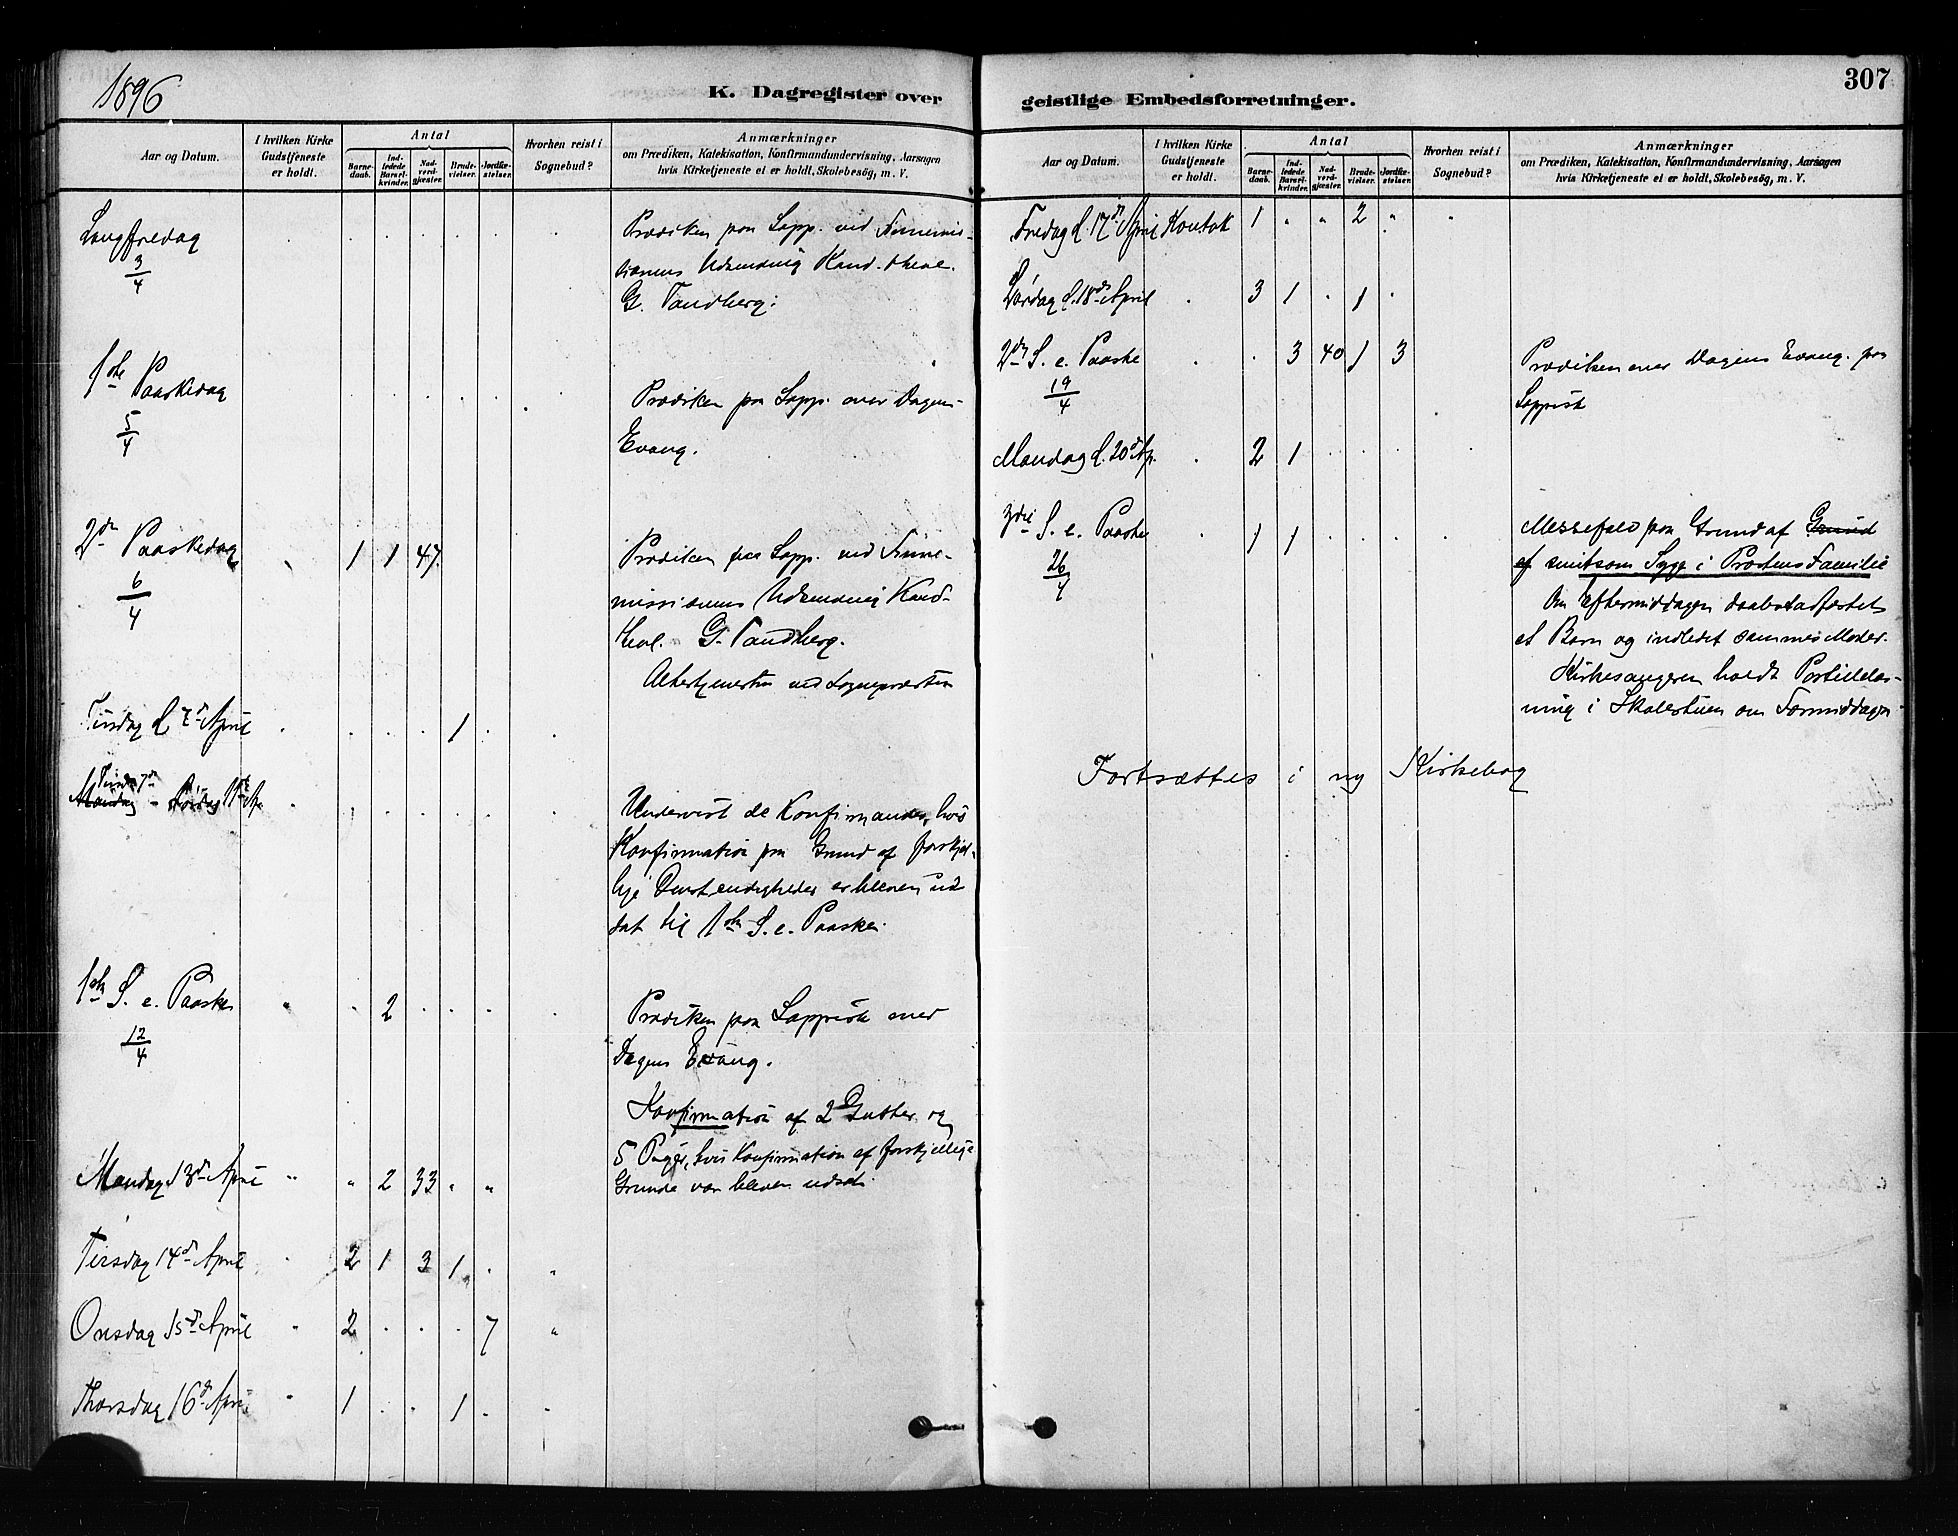 1896
K. Dagregister over
Aar og Datum.
I hvilken Kirke Gudstjeneste er holdt.
Antal
Barnedaab.
Indledede Barselkvinder.
Nadverdgjæster.
Brudevielser.
Jordfæstelser.
Hvorhen reist i Sognebud?
Anmærkninger
om Prædiken, Katekisation, Konfirmandundervisning, Aarsagen
hvis Kirketjeneste ei er holdt, Skolebesøg, m. V.
Langfredag
3/4
Prædiken paa Lapp. ved Finnemis-
sionens Udsending Kand. theol.
G. Tandberg.
1ste Paaskedag
5/4
Prædiken paa Lapp. over Dagens
Evang.
2den Paaskedag 1 1 47.
6/4
Prædiken paa Lapp. ved Finne-
missionens Udsending Kand.
theol. G. Tandberg.
Altertjenesten ved Sognepræsten
Tirsdag d. 7de April 1
Tirsdag 7de
Mandag - Lørdag 11te Ap.
Undervist de Konfirmander, hvis
Konfirmation paa Grund af forskjel-
lige Omstændigheder er bleven ud
sat til 1ste S. e. Paaske.
1ste S. e. Paaske " 2
12/4
Prædiken paa Lappisk over
Dagens Evang.
Konfirmation af 2 Gutter og
5 Piger, hvis Konfirmation af forskjellige
Grunde var bleven udsat.
Mandag 13de April " " 2 33 " "
Tirsdag 14de April " 2 1 3 1 "
Onsdag 15de April " 2 7 "
Thorsdag 16de April " 1 1
307
geistlige Embedsforretninger.
Aar og Datum.
I hvilken Kirke Gudstjeneste er holdt.
Antal
Barnedaab.
Indledede Barselkvinder.
Nadverdgjæster.
Brudevielser.
Jordfæstelser.
Hvorhen reist i Sognebud?
Anmærkninger
om Prædiken, Katekisation, Konfirmandundervisning, Aarsagen
hvis Kirketjeneste ei er holdt, Skolebesøg, m. V.
Fredag d. 17de April Koutok 1 " " 2 " "
Lørdag d. 18de April 3 1 1
2den S. e. Paaske 3 40 1 3
19/4
Prædiken over Dagens Evang. paa
Lappisk
Mandag d. 20de Ap. 2 1
3die S. e. Paaske 1 1
26/4
Messefald paa Grund af Grund
af smitsom Syge i Præstens Familie
Om Eftermiddagen daabstadfæstet
et Barn og indledet sammes Moder.
Kirkesangeren holdt Postillelæs-
ning i Skolestuen om Formiddagen
Fortsættes i ny Kirkebog